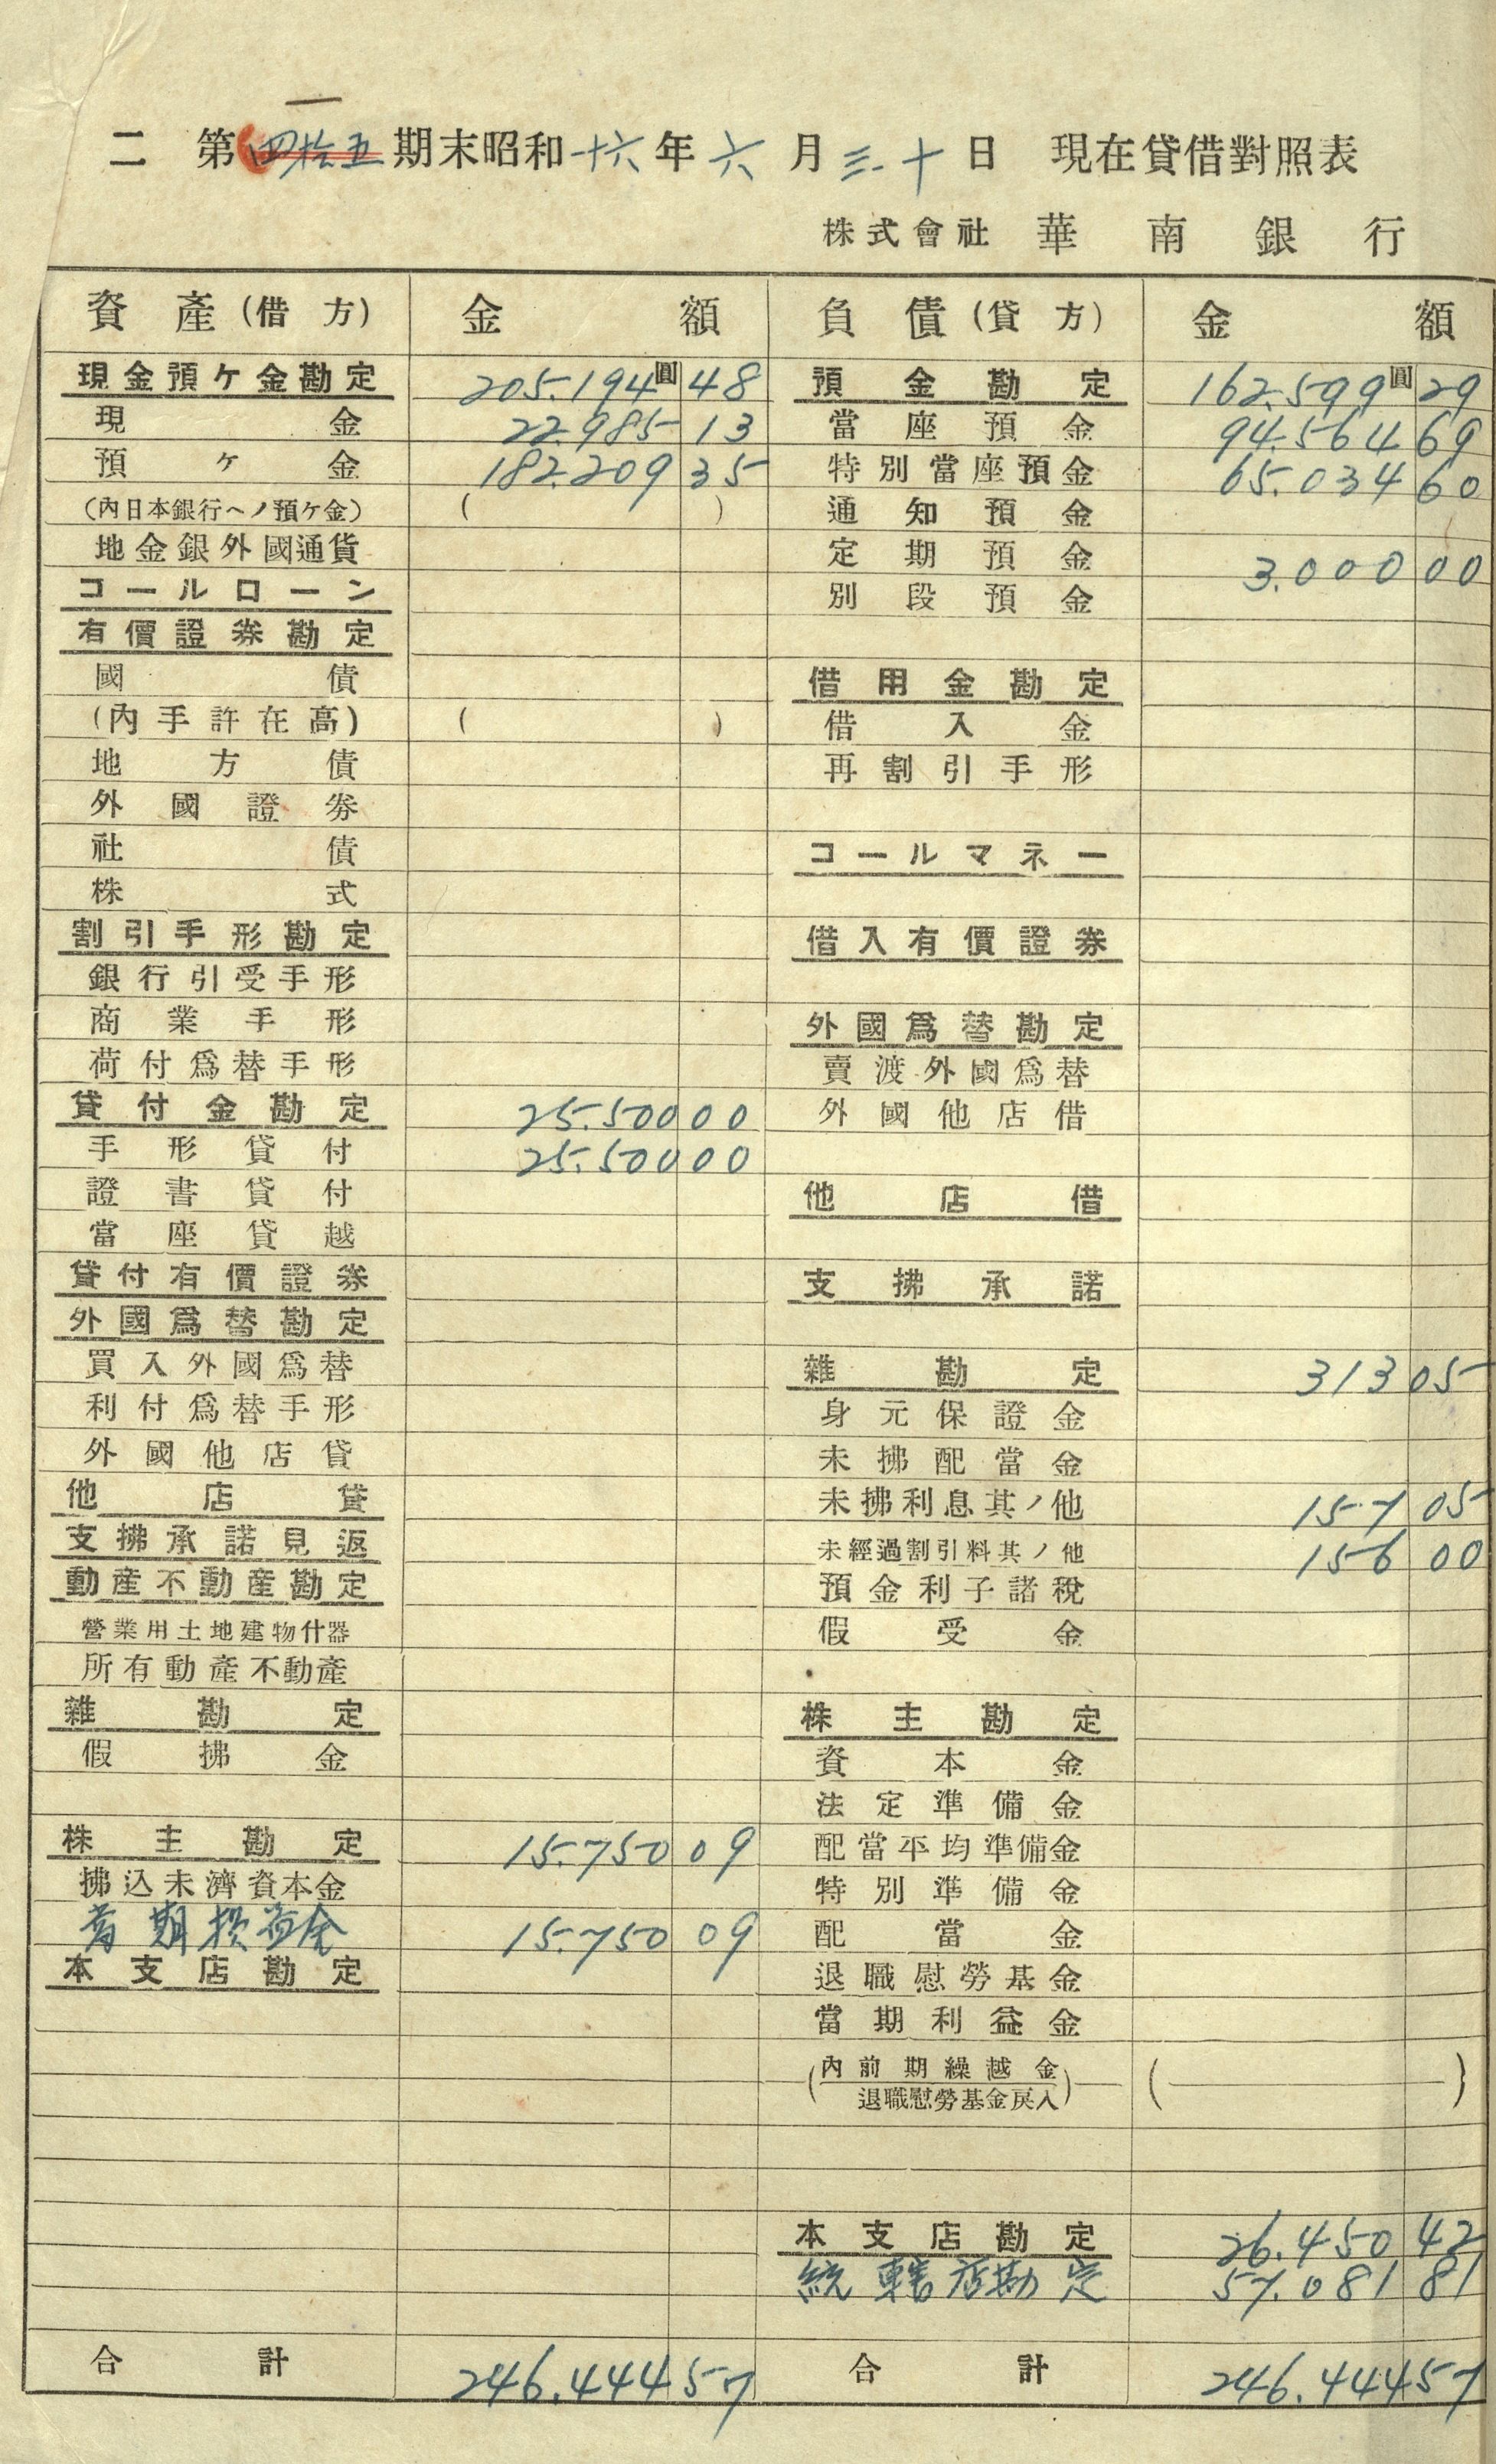 二 第一四拾五期末昭和十六年六月三十日 現在貸借對照表
株式會社 華南銀行
資產(借方) 金額 負債(貸方) 金額
現金預ケ金勘定 205.194圓48
現金 22.985 13
預ケ金 182.209 35
(內日本銀行ヘノ預ケ金) ( )
地金銀外國通貨
コールローン
有價證券勘定
國債
(內手許在高) ( )
地方債
外國證券
社債
株式
割引手形勘定
銀行引受手形
商業手形
荷付爲替手形
貸付金勘定 25.500 00
手形貸付 25.500 00
證書貸付
當座貸越
貸付有價證券
外國爲替勘定
買入外國爲替
利付爲替手形
外國他店貸
他店貸
支拂承諾見返
動產不動產勘定
營業用土地建物什器
所有動產不動產
雜勘定
假拂金
株主勘定 15.750 09
拂込未濟資本金
當期損益金 15.750 09
本支店勘定
合計 246.444 57
預金勘定 162.599圓29
當座預金 94.564 69
特別當座預金 65.034 60
通知預金
定期預金 3.000 00
別段預金
借用金勘定
借入金
再割引手形
コールマネー
借入有價證券
外國爲替勘定
賣渡外國爲替
外國他店借
他店借
支拂承諾
雜勘定 313 05
身元保證金
未拂配當金
未拂利息其ノ他 157 05
未經過割引料其ノ他 156 00
預金利子諸稅
假受金
株主勘定
資本金
法定準備金
配當平均準備金
特別準備金
配當金
退職慰勞基金
當期利益金
(內前期繰越金 ( )
退職慰勞基金戾入)
本支店勘定 26.450 42
統轄店勘定 57.081 81
合計 246.444 57